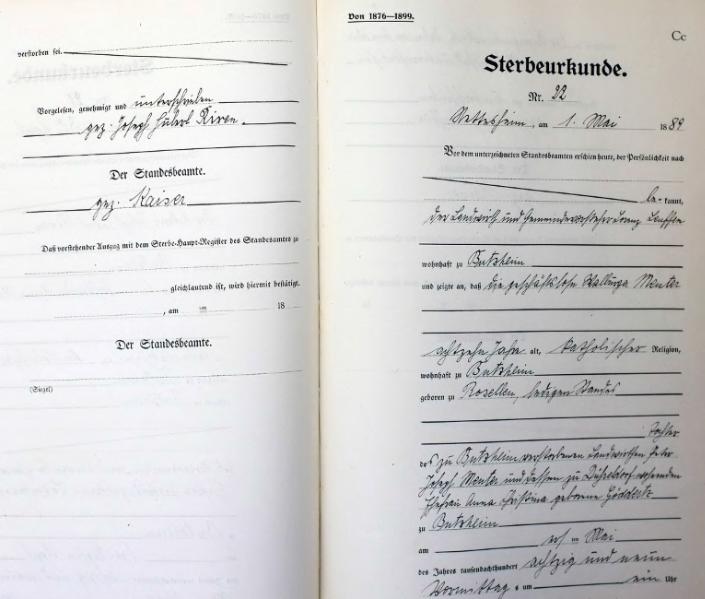 verstorben sei.
Vorgelesen, genehmigt und unterschrieben
gez. Joseph Hubert
Der Standesbeamte.
gez. Kaiser
Daß vorstehender Auszug mit dem Sterbe-Haupt-Register des Standesamtes zu
gleichlautend ist, wird hiermit bestätigt.
, am 18
Der Standesbeamte.
(Siegel)
Von 1876—1899.
Cc
Sterbeurkunde.
Nr. 22
Nettesheim, am 1. Mai 1889
Vor dem unterzeichneten Standesbeamten erschien heute, der Persönlichkeit nach
be- kannt,
der Landwirth und Gemeindevorsteher
wohnhaft zu Butzheim
und zeigte an, daß die geschäftslose Walburga Menter
achtzehn Jahre alt, katholischer Religion,
wohnhaft zu Butzheim
geboren zu Rosellen, ledigen Standes
Tochter
des zu Butzheim verstorbenen Landwirthen Peter
Joseph Menter und dessen zu Düsseldorf wohnenden
Ehefrau Anna Christina geborene
zu Butzheim
am Mai
des Jahres tausendachthundert achtzig und neun
Vormittags um ein Uhr